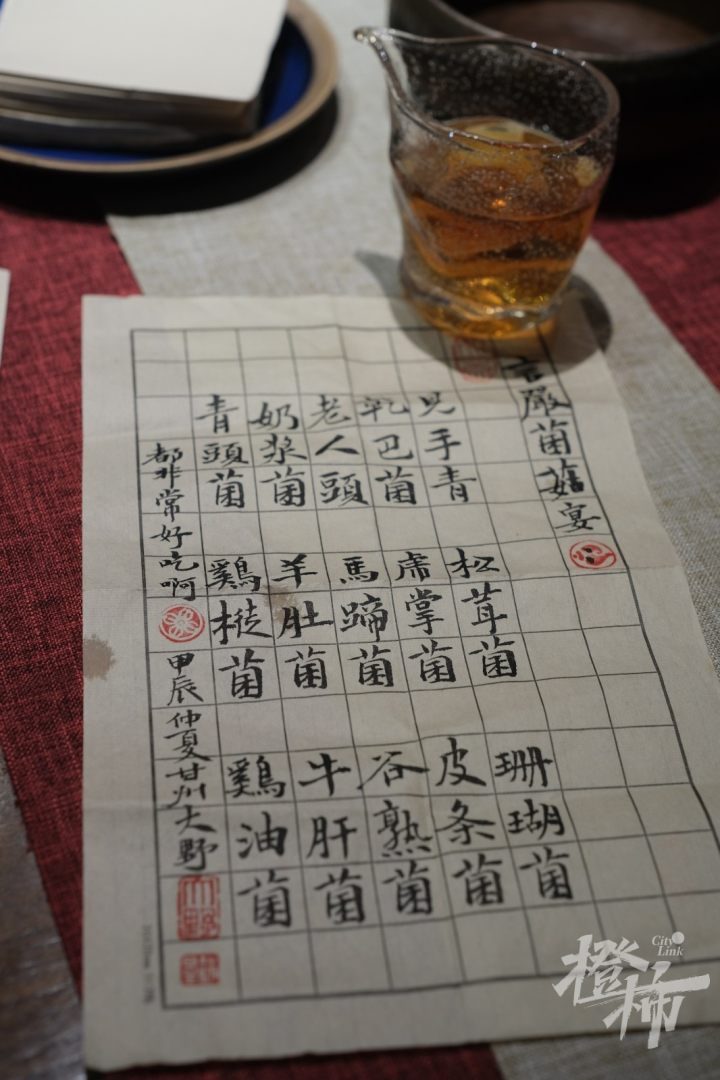 言嚴菌菇宴
見手青
乹巴菌
老人頭
奶浆菌
青頭菌
松茸菌
虎掌菌
馬蹄菌
羊肚菌
鷄樅菌
珊瑚菌
皮条菌
谷熟菌
牛肝菌
鷄油菌
都非常好吃啊
甲辰仲夏甘州大野
大野
橙柿
City Link